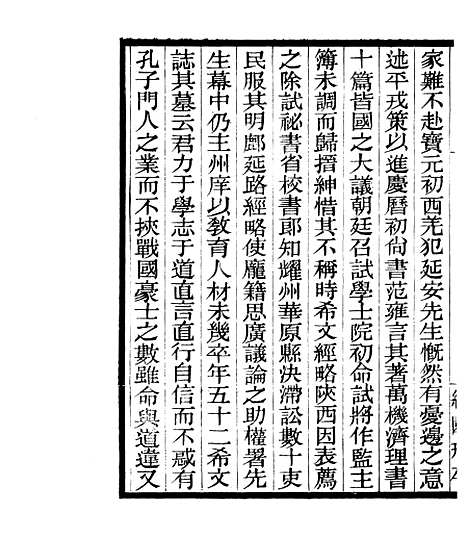 家難不赴寶元初西羌犯延安先生慨然有憂邊之意
述平戎策以進慶曆初尚書范雍言其著萬機濟理書
十篇皆國之大議朝廷召試學士院初命試將作監主
簿未調而歸搢紳惜其不稱時希文經略陝西因表薦
之除試祕書省校書郎知耀州華原縣決滯訟數十吏
民服其明鄜延路經略使龐籍思廣議論之助權署先
生幕中仍主州庠以敎育人材未幾卒年五十二希文
誌其墓云君力于學志于道直言直行自信而不惑有
孔子門人之業而不挾戰國豪士之數雖命與道違又